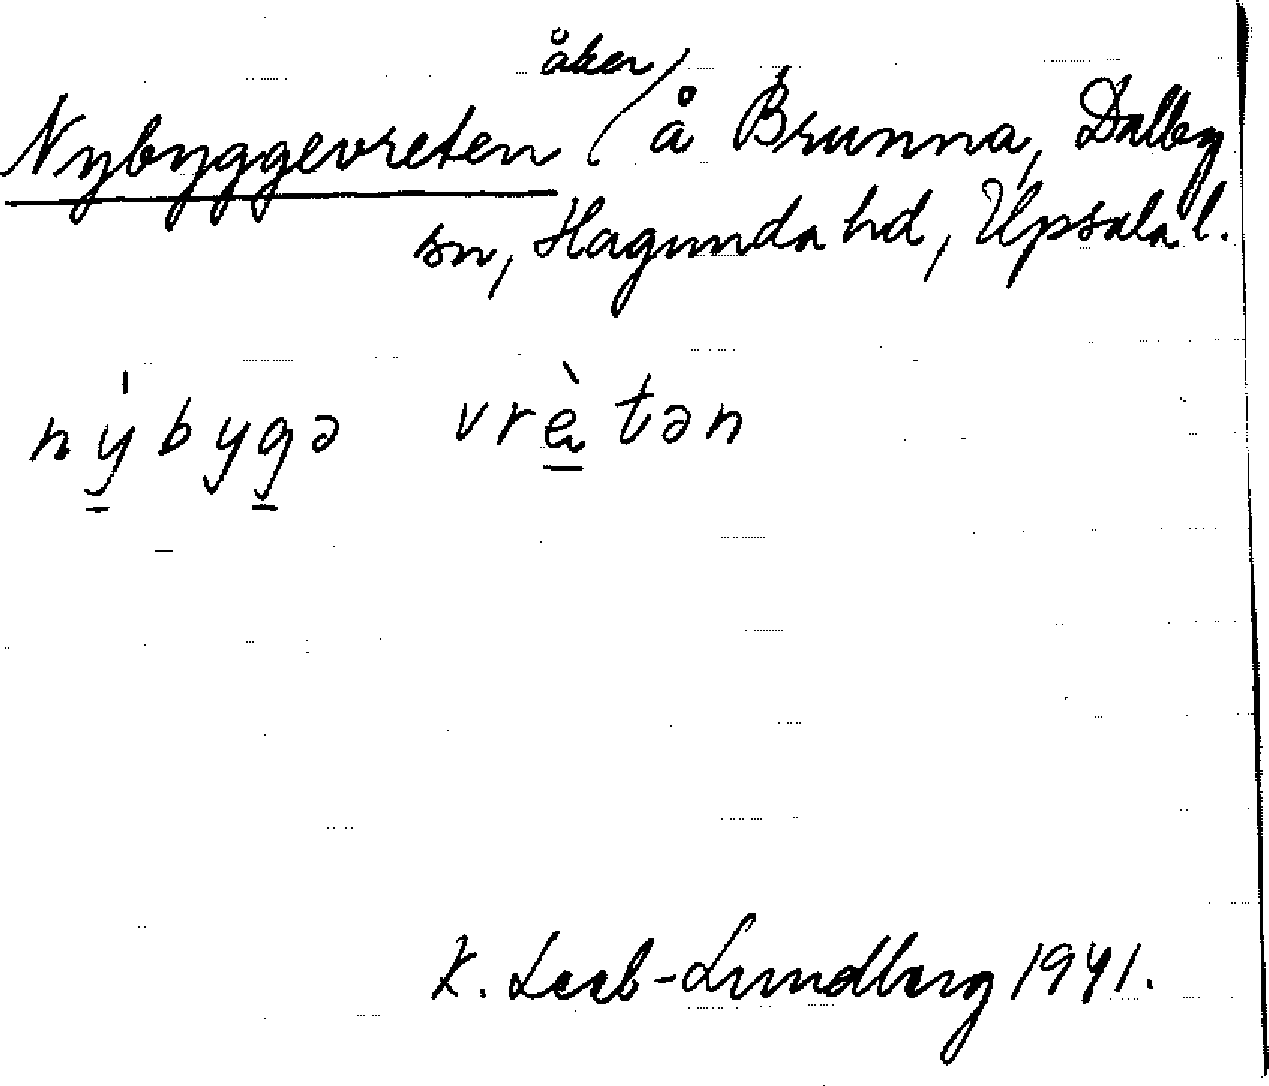 Nybyggevreten åker å Brunna, Dalby
sn, Hagunda hd, Upsala l.
nýbygə vrètən
K. Leeb-Lundberg 1941.